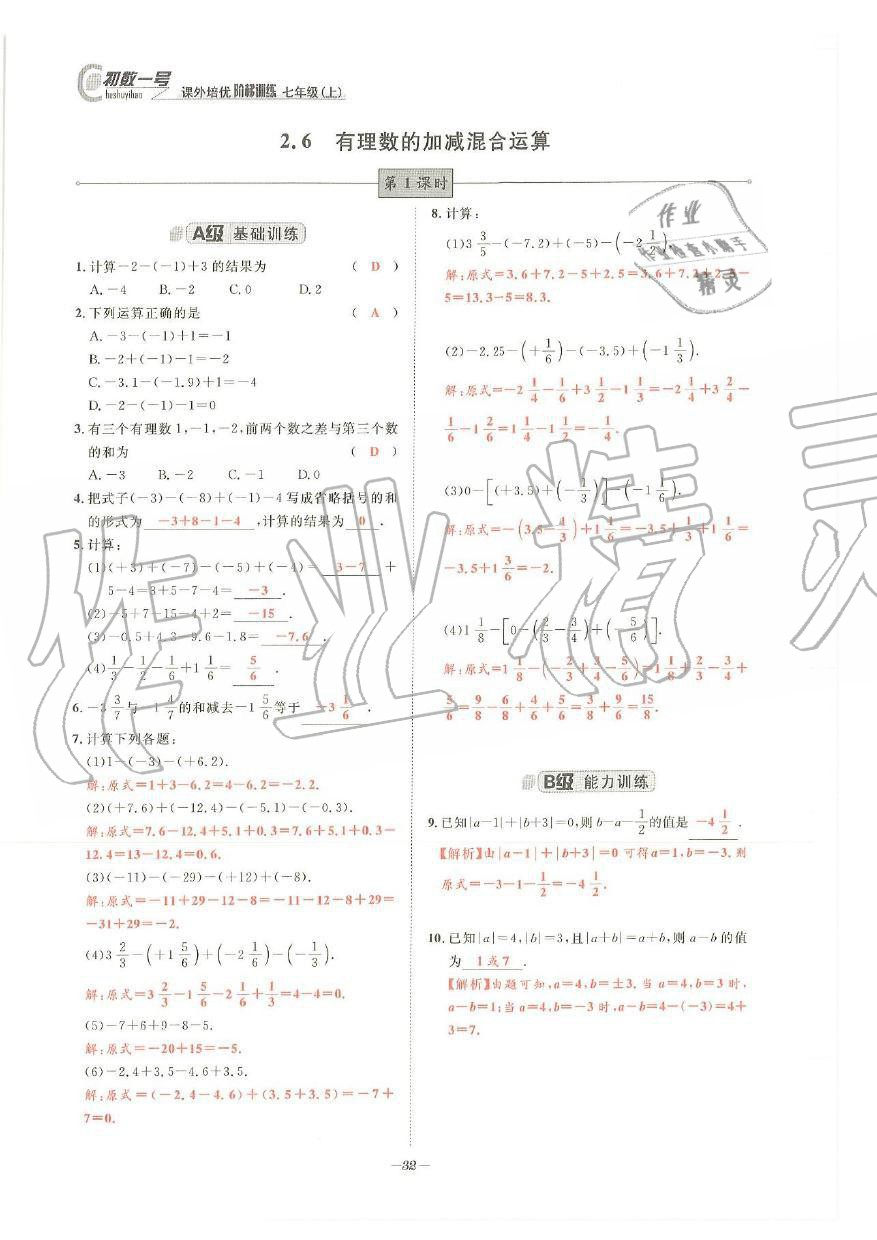 初数一号
chushuyihao
课外培优 阶梯训练 七年级(上)
2.6 有理数的加减混合运算
第1课时
A级 基础训练
1.计算-2-(-1)+3的结果为 ( D )
A.-4 B.-2 C.0 D.2
2.下列运算正确的是 ( A )
A.-3-(-1)+1=-1
B.-2+(-1)-1=-2
C.-3.1-(-1.9)+1=-4
D.-2-(-1)-1=0
3.有三个有理数1,-1,-2,前两个数之差与第三个数
的和为 ( D )
A.-3 B.-2 C.-1 D.0
4.把式子(-3)-(-8)+(-1)-4写成省略括号的和
的形式为 -3+8-1-4 ,计算的结果为 0 .
5.计算:
(1)(+3)+(-7)-(-5)+(-4)= 3-7 +
5-4=3+5-7-4= -3 .
(2)-5+7-15-4+2= -15 .
(3)-0.5+4.3-9.6-1.8= -7.6 .
(4)1/3-1/2-1/6+1 1/6= 5/6 .
6.-3 3/7与-1 4/7的和减去-1 5/6等于 -3 1/6 .
7.计算下列各题:
(1)1-(-3)-(+6.2).
解:原式=1+3-6.2=4-6.2=-2.2.
(2)(+7.6)+(-12.4)-(-5.1)-(-0.3).
解:原式=7.6-12.4+5.1+0.3=7.6+5.1+0.3-
12.4=13-12.4=0.6.
(3)(-11)-(-29)-(+12)+(-8).
解:原式=-11+29-12-8=-11-12-8+29=
-31+29=-2.
(4)3 2/3-(+1 5/6)+(-2 1/6)-(-1/3).
解:原式=3 2/3-1 5/6-2 1/6+1/3=4-4=0.
(5)-7+6+9-8-5.
解:原式=-20+15=-5.
(6)-2.4+3.5-4.6+3.5.
解:原式=(-2.4-4.6)+(3.5+3.5)=-7+
7=0.
8.计算:
(1)3 3/5-(-7.2)+(-5)-(-2 1/2).
解:原式=3.6+7.2-5+2.5=3.6+7.2+2.5-
5=13.3-5=8.3.
(2)-2.25-(+1/6)-(-3.5)+(-1 1/3).
解:原式=-2 1/4-1/6+3 1/2-1 1/3=-2 1/4+3 2/4-
1/6-1 2/6=1 1/4-1 1/2=-1/4.
(3)0-[(+3.5)+(-1/3)]-(-1 1/6).
解:原式=-(3.5-1/3)+1 1/6=-3.5+1/3+1 1/6=
-3.5+1 3/6=-2.
(4)1 1/8-[0-(2/3-3/4)+(-5/6)].
解:原式=1 1/8-(-2/3+3/4-5/6)=1 1/8+2/3-3/4+
5/6=9/8-6/8+4/6+5/6=3/8+9/6=15/8.
B级 能力训练
9.已知|a-1|+|b+3|=0,则b-a-1/2的值是 -4 1/2 .
【解析】由|a-1|+|b+3|=0可得a=1,b=-3.则
原式=-3-1-1/2=-4 1/2.
10.已知|a|=4,|b|=3,且|a+b|=a+b,则a-b的值
为 1或7 .
【解析】由题可知,a=4,b=±3.当a=4,b=3时,
a-b=1;当a=4,b=-3时,a-b=4-(-3)=4+
3=7.
-32-
作业
作业检查小助手
精灵
作业精灵